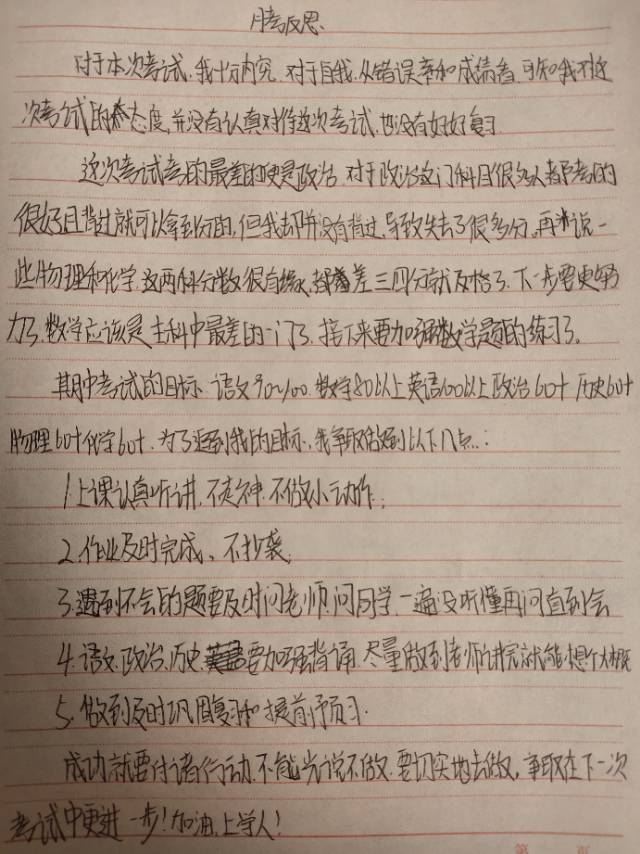 月考反思
对于本次考试,我十分内疚,对于自我,从错误率和成绩看,可知我对这
次考试的态度,并没有认真对待这次考试,也没有好好复习
这次考试考的最差的硬是政治,对于政治这门科目很多人都考的
很好且背过就可以拿到分的,但我却并没有背过,导致失去了很多分。再来说一
些物理和化学,这两科分数很自缘,都差三四分就及格了,下一步要更努
力了,数学应该是主科中最差的一门了,接下来要加强数学题的练习了。
其期中考试的目标:语文90~100,数学80以上英语100以上政治60+历史60+
物理60+化学60+.为了遇到我的目标,我争取做到以下几点:
1.上课认真听讲,不走神,不做小动作;
2.作业及时完成、不抄袭;
3.遇到不会的题要及时问老师,问同学,一遍没听懂再问直到会
4.语文,政治,历史要加强背诵,尽量做到老师讲完就能想个大概
5.做到及时巩固复习和提前预习.
成功就要付诸行动,不能光说不做,要切实地去做,争取在下一次
考试中更进一步!加油,上学人!
第 页